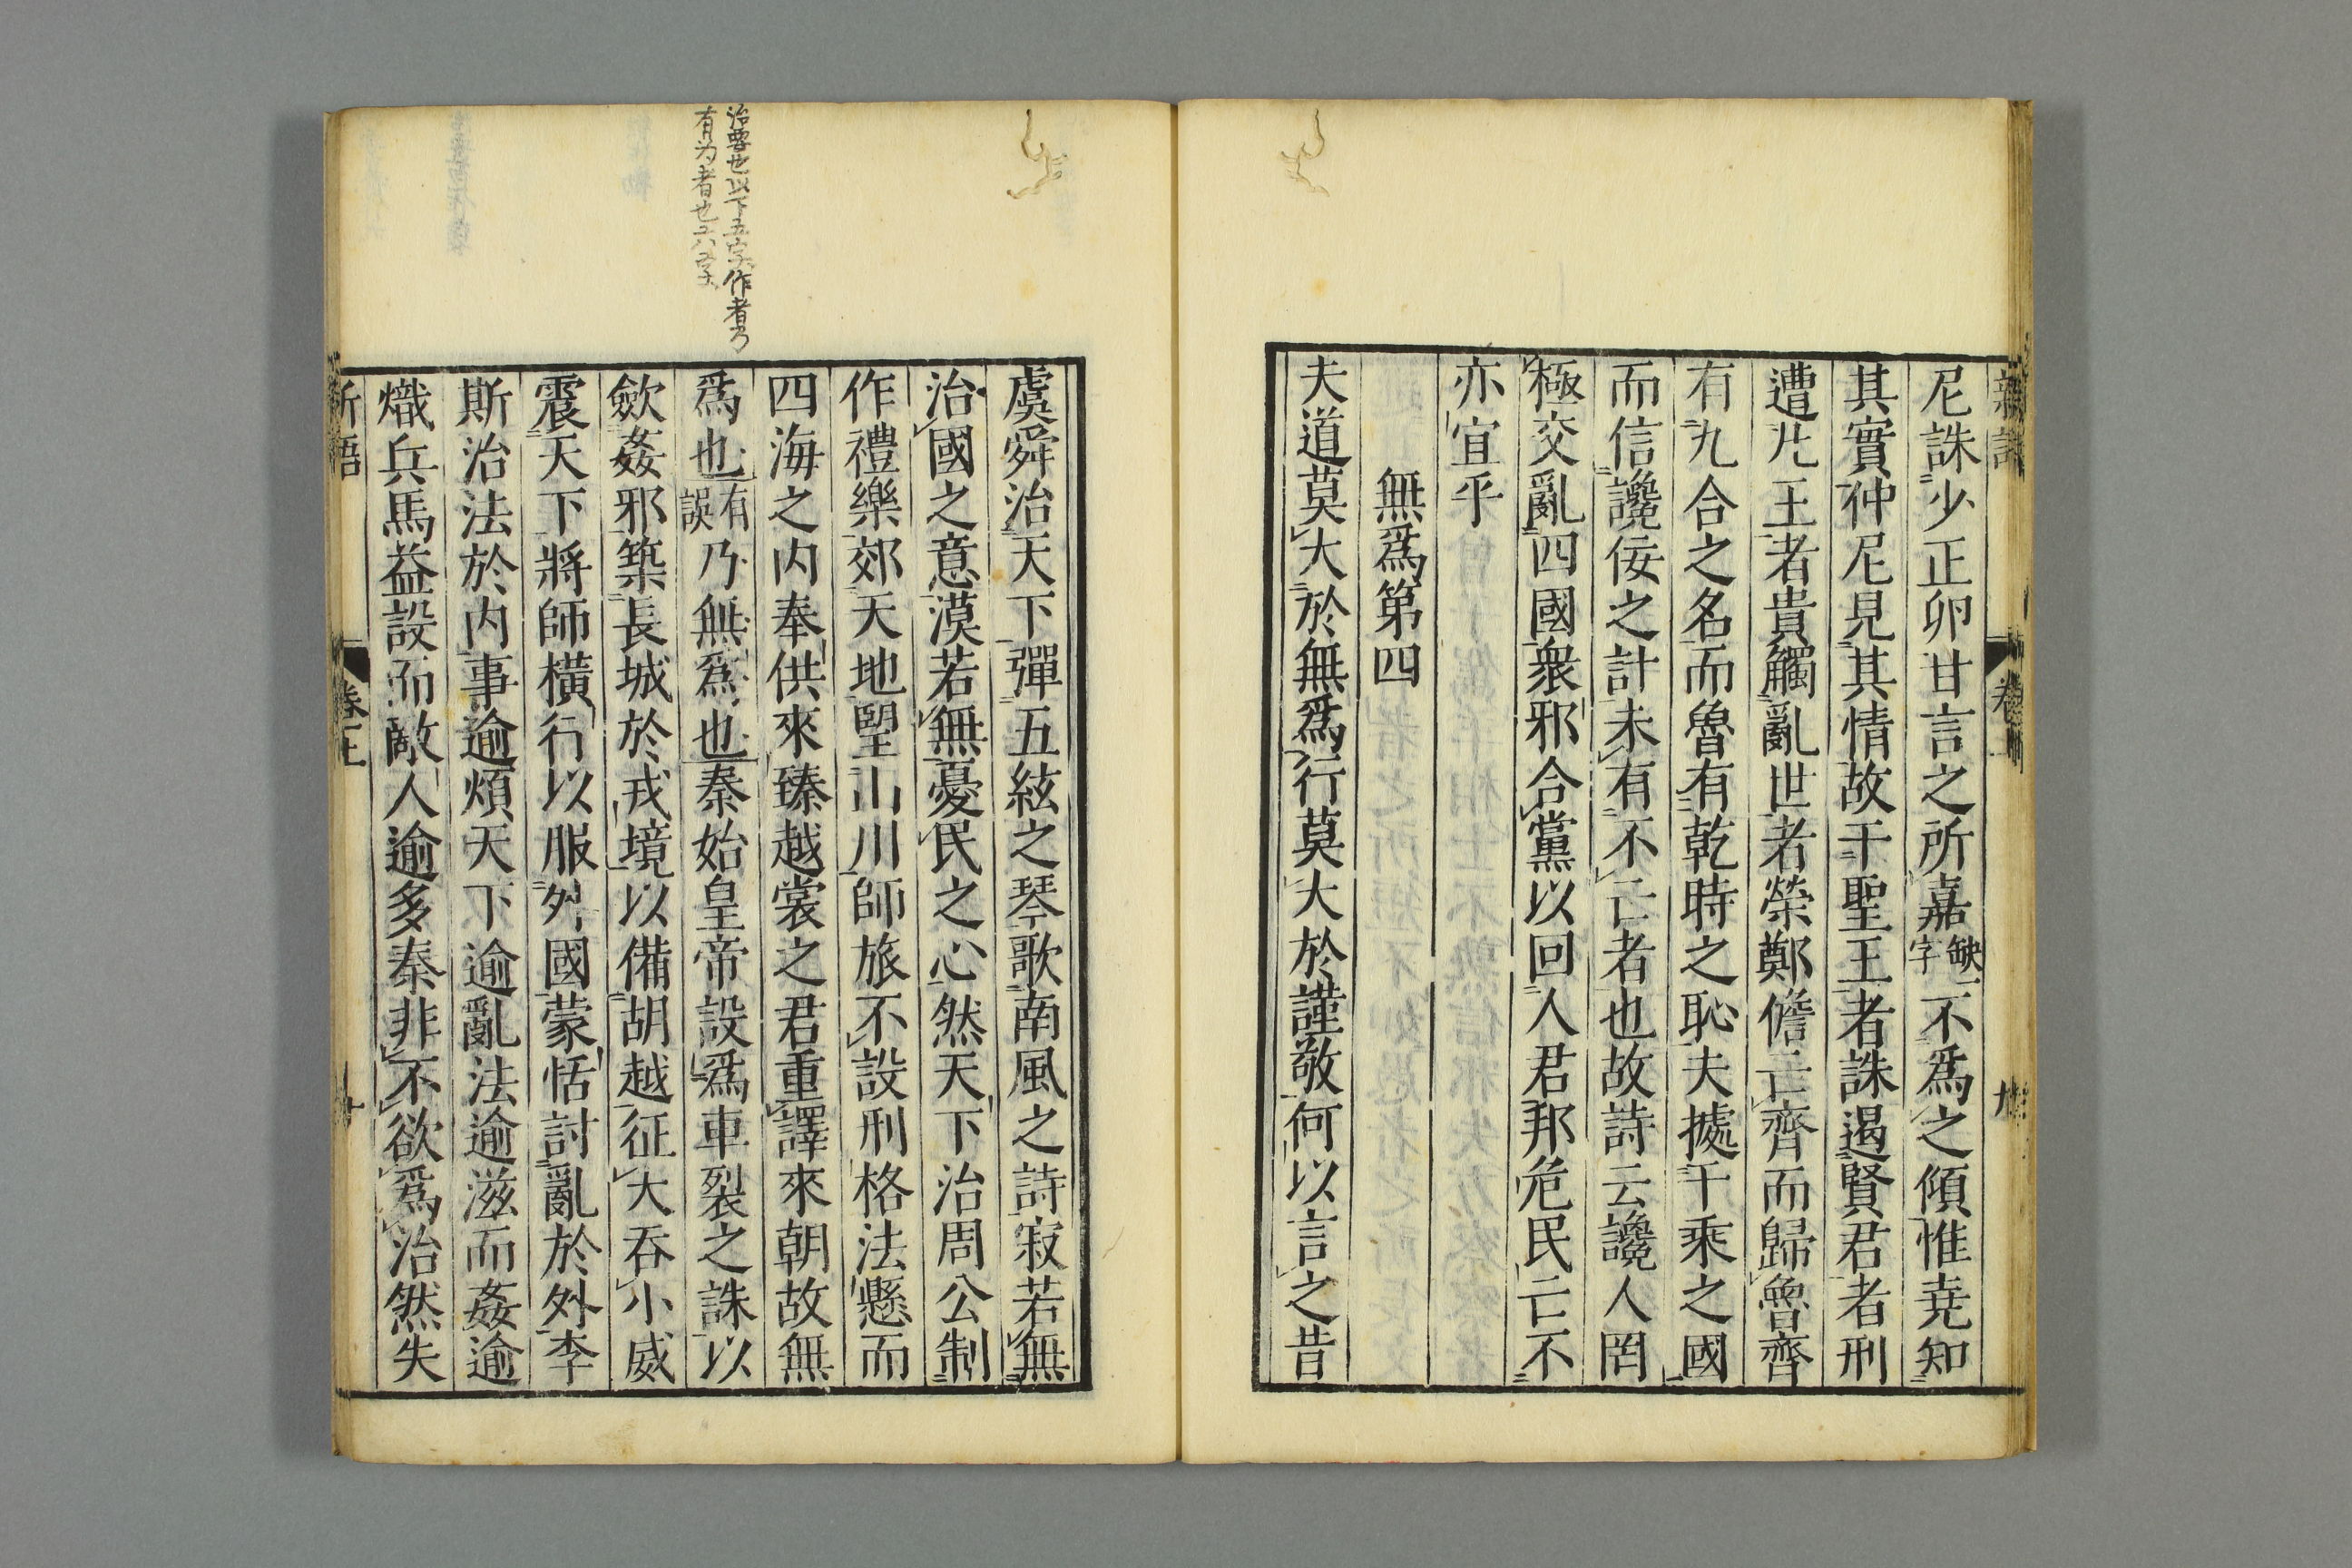 尼誅少正卯甘言之所嘉缺一字不爲之傾惟堯知
其實仲尼見其情故干聖王者誅遏賢君者刑
遭凡王者貴觸亂世者榮鄭儋亡齊而歸魯齊
有九合之名而魯有乾時之恥夫據千乘之國
而信讒佞之計未有不亡者也故詩云讒人罔
極交亂四國衆邪合黨以回人君邦危民亡不
亦宜乎
無爲第四
夫道莫大於無爲行莫大於謹敬何以言之昔
治要也以下五字作者乃
有为者也六字
虞舜治天下彈五絃之琴歌南風之詩寂若無
治國之意漠若無憂民之心然天下治周公制
作禮樂郊天地望山川師旅不設刑格法懸而
四海之內奉供來臻越裳之君重譯來朝故無
爲也有誤乃無爲也秦始皇帝設爲車裂之誅以
歛姦邪築長城於戎境以備胡越征大吞小威
震天下將師橫行以服外國蒙恬討亂於外李
斯治法於內事逾煩天下逾亂法逾滋而姦逾
熾兵馬益設而敵人逾多秦非不欲爲治然失
新語
卷上
十